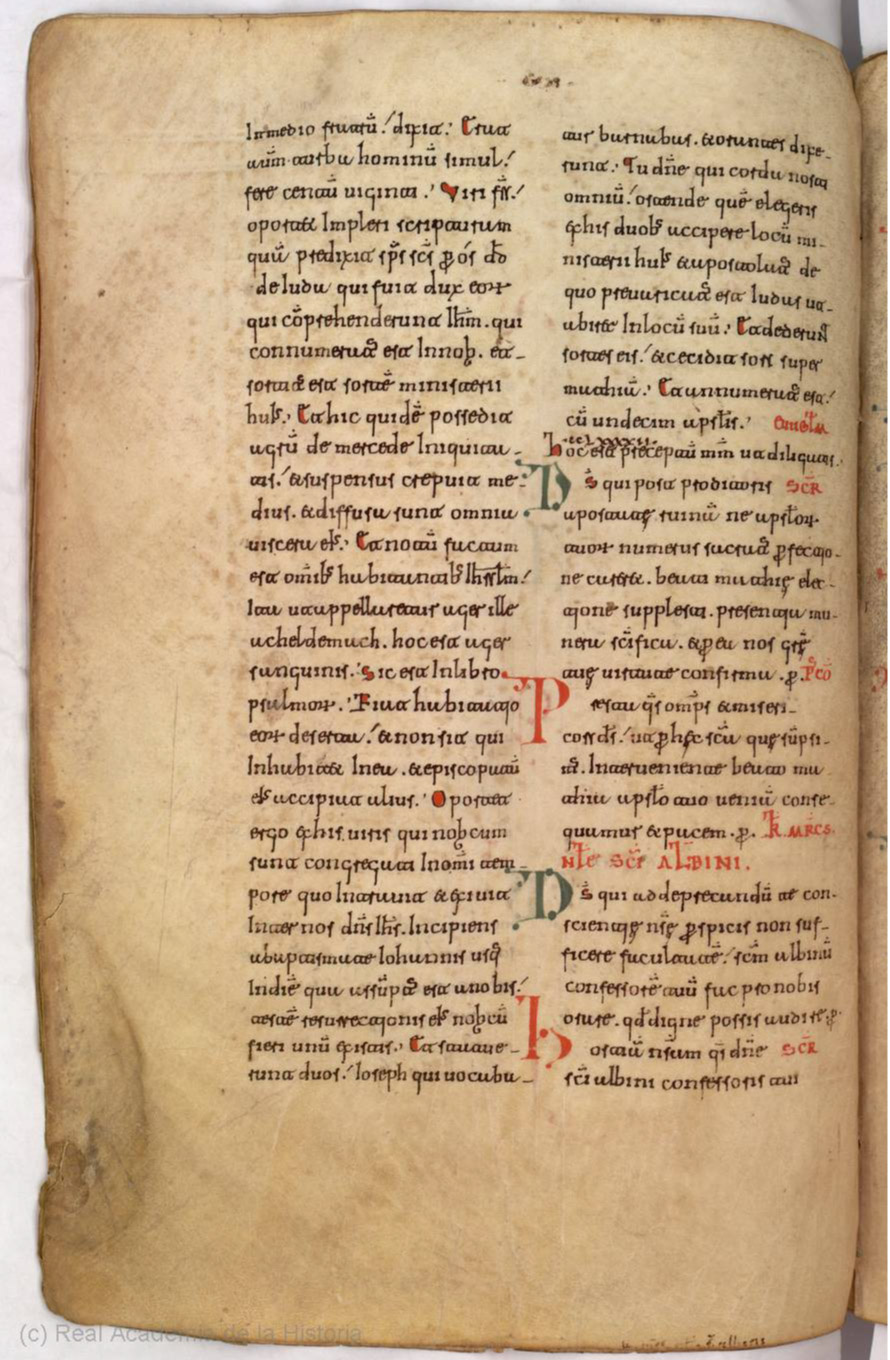 Inmedio fratrū. dixit. Erat
aūm turba hominū simul.
fere centū uiginti. Viri fr̄s.
oportet Impleri scripturam
quā predixit sp̄s sc̄s ꝑ os dd̄
de iuda qui fuit dux eoꝝ
qui cōprehenderunt Ih̄m. qui
connumeratꝰ est Innob̄. et
sortitꝰ est sortē ministerii
huiꝰ. Et hic quidē possedit
agrū de mercede Iniquita
tis. et suspensus crepuit me
dius. et diffusa sunt omnia
uiscera eiꝰ. Et notū factum
est om̄ib; habitantib; Ihrslm.
Ita ut appellaretur ager ille
acheldemach. hoc est ager
sanguinis. Sic est Inlibro
psalmoꝝ. Fiat habitatio
eoꝝ deserta. et non sit qui
Inhabitet Inea. et episcopatū
eiꝰ accipiat alius. Oportet
ergo ex his uiris qui nob̄cum
sunt congregati Inom̄i tem
pore quo Intrauit et exiuit
Inter nos dn̄s Ih̄s. Incipiens
abaptismate Iohannis usq;
Indiē qua assūptꝰ est anobis.
testē resurrectionis eiꝰ nob̄cū
fieri unū ex istis. Et statue
runt duos. Ioseph qui uocaba
tur barnabas. et orantes dixe
runt. Tu dn̄e qui corda nosti
omniū. ostende quē elegeris
ex his duob; accipere locū mi
nisterii huiꝰ et apostolatꝰ de
quo preuaricatꝰ est Iudas ut
abiret Inlocū suū. Et dederunt
sortes eis. et cecidit sors super
mathiā. Et annumeratꝰ est.
cū undecim aplis. euuglm
Hoc est preceptū mm̄ ut diligatis.
D s̄ qui post proditoris SCR
apostate ruinā ne aploꝝ
tuoꝝ numerus sacratꝰ ꝑfectio
ne careret. beati mathię elec
tione supplesti. presentia mu
nera sc̄ifica. et ꝑ ea nos grę
tuę uirtute confirma. ꝑ. PCO
Presta qs̄ omp̄s et miseri
cors ds̄. ut ꝑ hęc scā que sūpsi
mꝰ. Interueniente beato ma
thia aplo tuo ueniā conse
quamur et pacem. ꝑ. K MRCS.
NLE SCI ALBINI.
D s̄ qui ad deprecandū te con
scientię nrę ꝑspicis non suf
ficere facultatē. sc̄m albinū
confessorē tuū fac pro nobis
orare. qđ digne possis audire. ꝑ
Hostiā nr̄am qs̄ dn̄e SCR
sc̄i albini confessoris tui